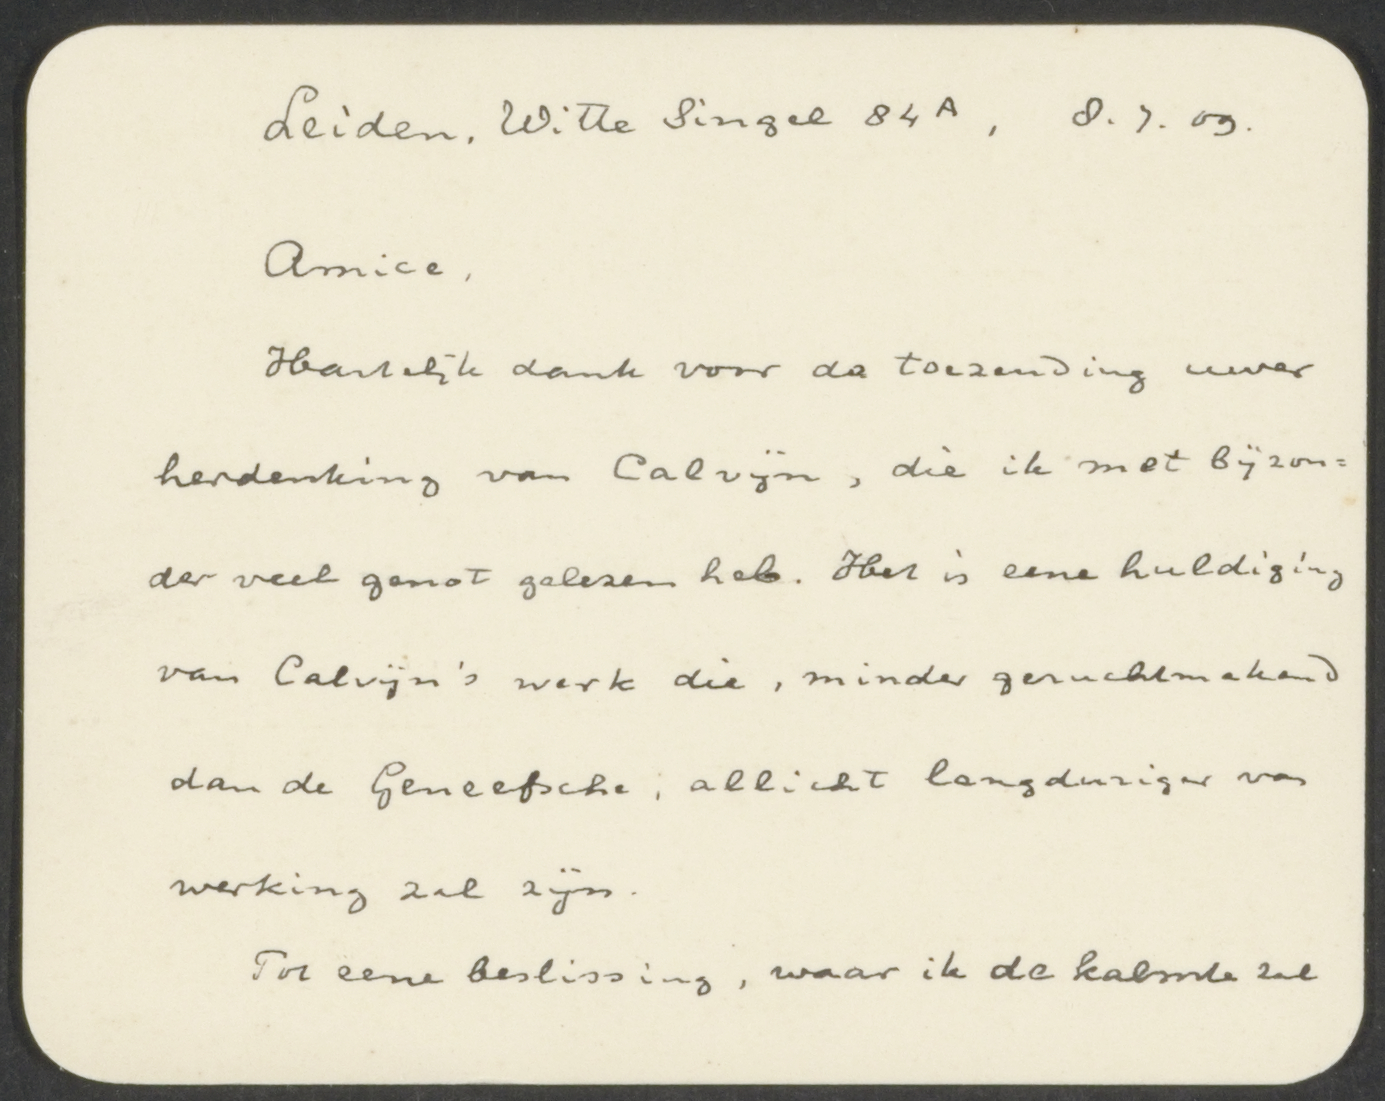 Leiden, Witte Singel 84A, 8.7.09.
Amice,
Hartelijk dank voor de toezending uwer
herdenking van Calvijn, die ik met bijzon=
der veel genot gelezen heb. Het is eene huldiging
van Calvijn's werk die, minder geruchtmakend
dan de Geneefsche, allicht langduriger van
werking zal zijn.
Tot eene beslissing, waar ik de kalmte zal